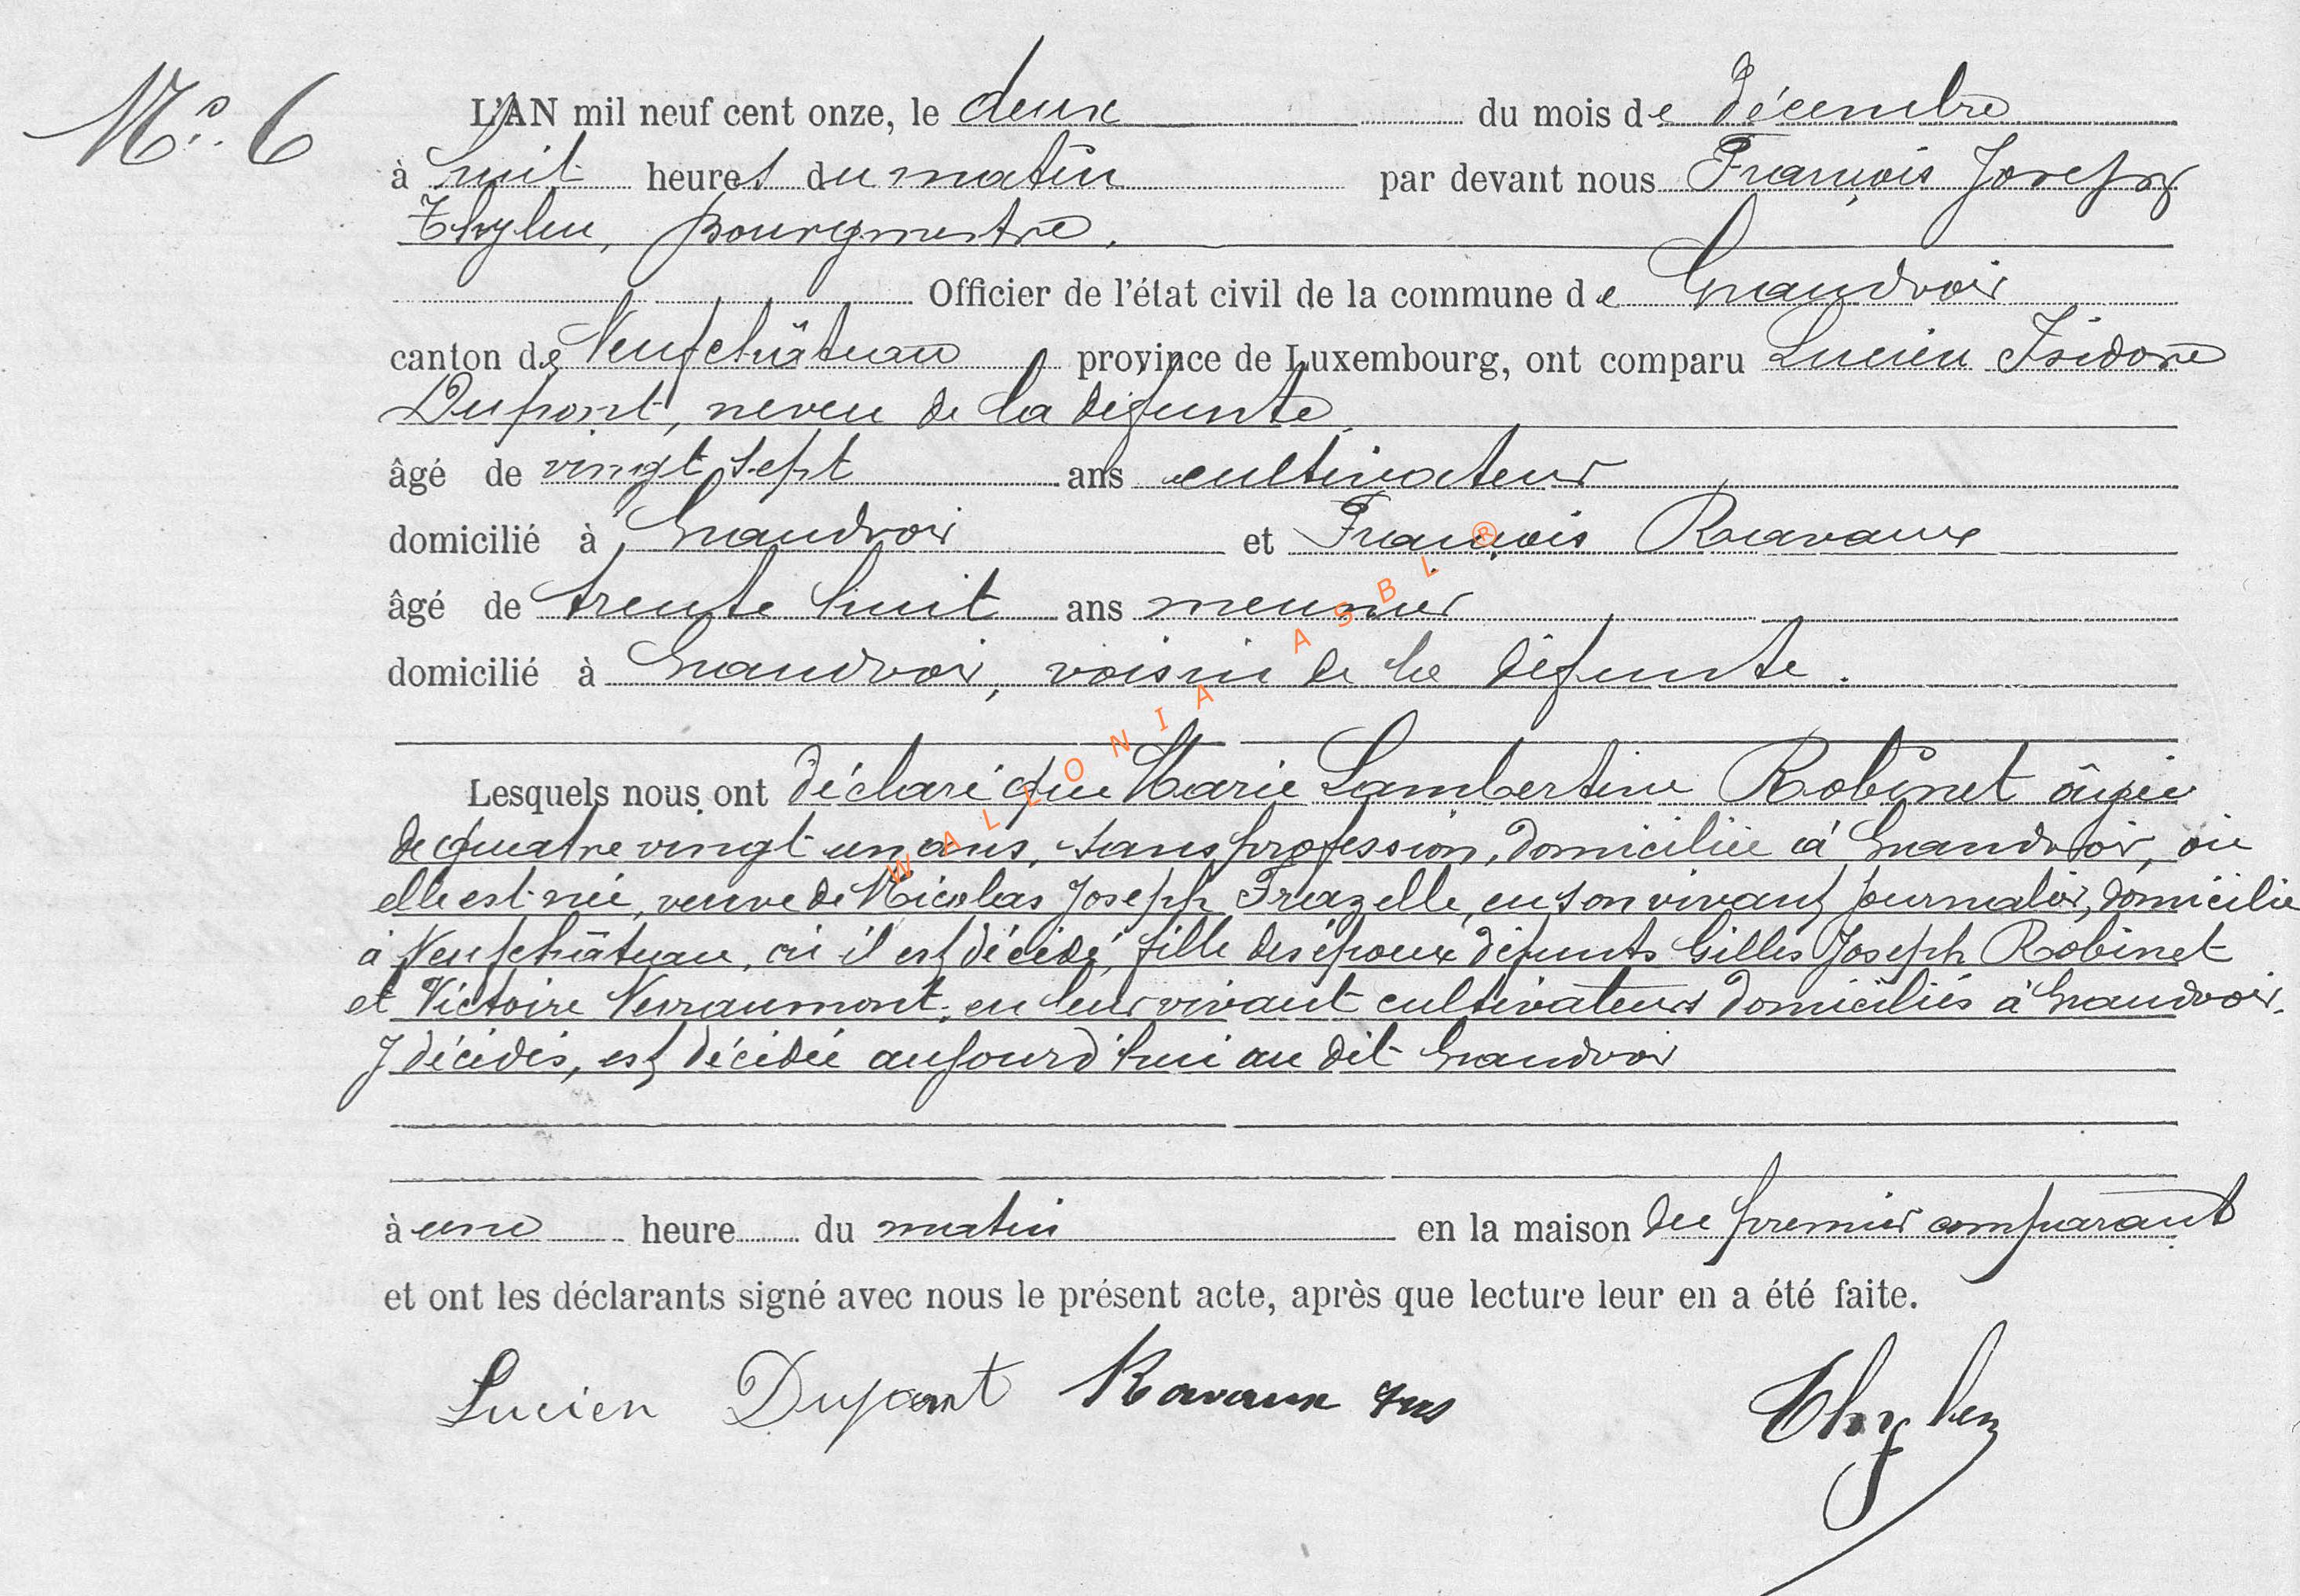 N° 6
L'AN mil neuf cent onze, le deux du mois de Décembre
à huit heures du matin par devant nous François Joseph
Thylen, bourgmestre,
Officier de l'état civil de la commune de Grandvoir
canton de Neufchâteau province de Luxembourg, ont comparu Lucien Isidore
Dupont, neveu de la défunte
âgé de vingt sept ans cultivateur
domicilié à Grandvoir et François Ravaux
âgé de trente huit ans meunier
domicilié à Grandvoir, voisin de la défunte.
Lesquels nous ont déclaré que Marie Lambertine Robinet âgée
de quatre vingt un ans, sans profession, domiciliée à Grandvoir, où
elle est née, veuve de Nicolas Joseph Frazelle, en son vivant journalier, domicilié
à Neufchâteau, où il est décédé, fille des époux défunts Gilles Joseph Robinet
et Victoire Nevraumont, en leur vivant cultivateurs domiciliés à Grandvoir,
y décédés, est décédée aujourd'hui au dit Grandvoir
à une heure du matin en la maison du premier comparant
et ont les déclarants signé avec nous le présent acte, après que lecture leur en a été faite.
Lucien Dupont Ravaux Frs Thylen
WALLONIA ASBL ®